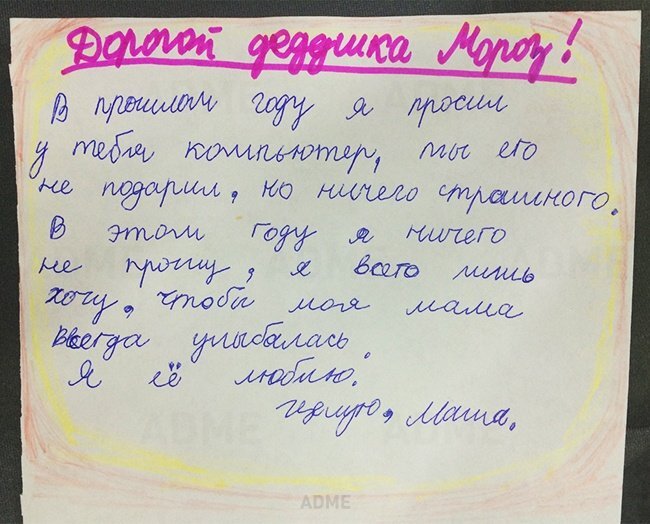 Дорогой дедушка Мороз!
В прошлом году я просил
у тебя компьютер, ты его
не подарил, но ничего страшного.
В этом году я ничего
не прошу, я всего лишь
хочу, чтобы моя мама
всегда улыбалась.
Я её люблю.
Целую, Маша.
ADME